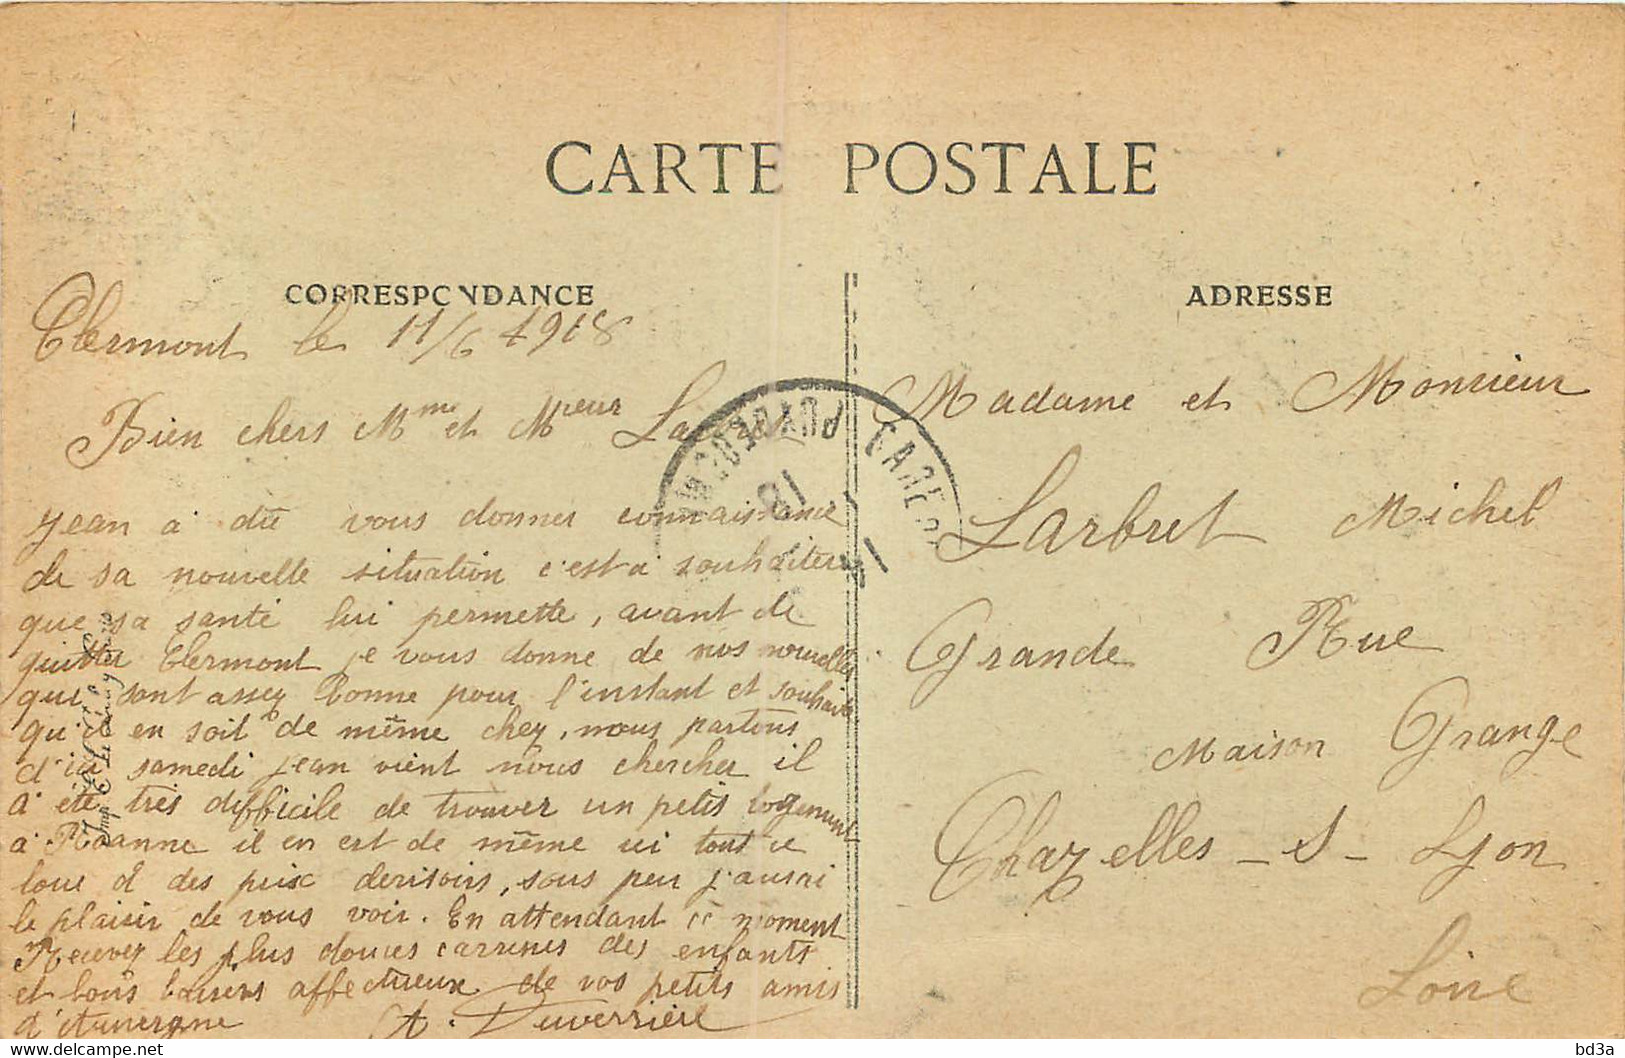 CARTE POSTALE
CORRESPONDANCE
Clermont le 11/6 1918
Bien chers Mme et Mieur
Jean à dû vous donner connaissance
de sa nouvelle situation c'est à souhaiter
que sa santé lui permette, avant de
quitter Clermont je vous donne de nos nouvelles
qui sont assez bonne pour l'instant et souhaite
qu'il en soit de même chez, nous partons
d'ici samedi Jean vient nous chercher il
à été très difficile de trouver un petit logement
à Roanne il en est de même ici tout ce
loue à des prix derisoirs, sous peu j'aurai
le plaisir de vous voir. En attendant ce moment
Recevez les plus douces carresses des enfants
et bons baisers affectueux de vos petits amis
d'Auvergne A. Duverrière
ADRESSE
Madame et Monsieur
Larbret Michel
Grande Rue
Maison Grange
Chazelles - S - Lyon
Loire
GARE
PUY DE DOME
bd3a